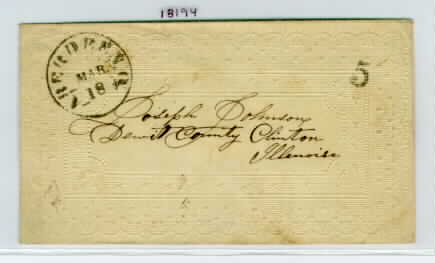 18194
ABERDEEN O
MAR
18
5
Joseph Johnson
Dewit County Clinton
Illenoise